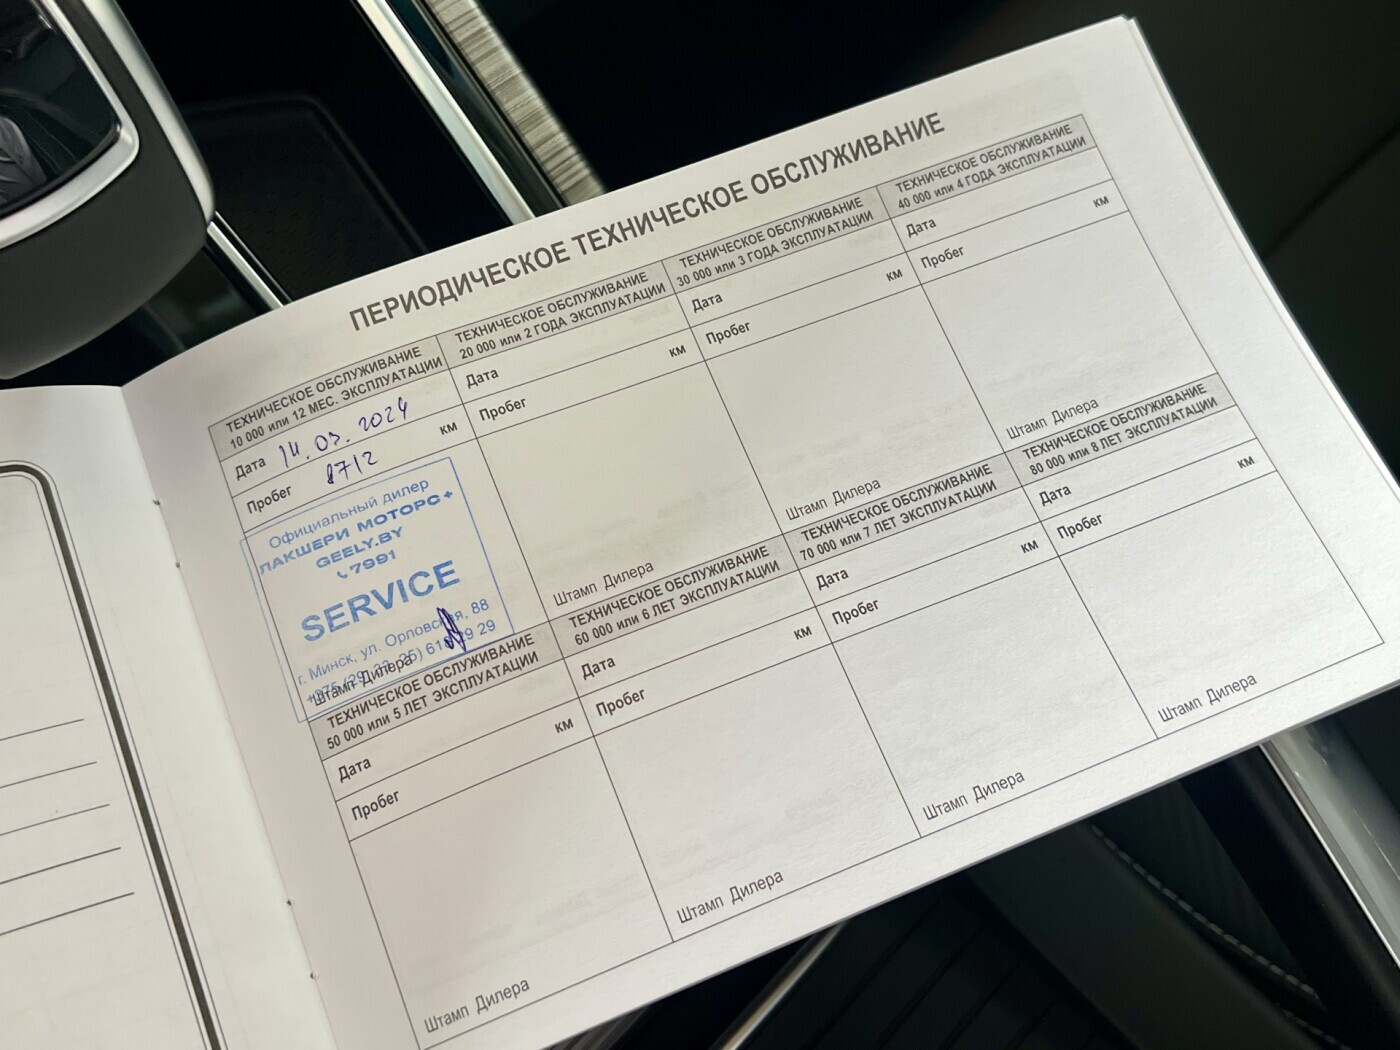 ПЕРИОДИЧЕСКОЕ ТЕХНИЧЕСКОЕ ОБСЛУЖИВАНИЕ
ТЕХНИЧЕСКОЕ ОБСЛУЖИВАНИЕ
10 000 или 12 МЕС. ЭКСПЛУАТАЦИИ
Дата 14.03.2024
Пробег 8712 км
Официальный дилер
ЛАКШЕРИ МОТОРС+
GEELY.BY
7991
SERVICE
г. Минск, ул. Орловская, 88
Штамп Дилера
ТЕХНИЧЕСКОЕ ОБСЛУЖИВАНИЕ
20 000 или 2 ГОДА ЭКСПЛУАТАЦИИ
Дата
Пробег км
Штамп Дилера
ТЕХНИЧЕСКОЕ ОБСЛУЖИВАНИЕ
30 000 или 3 ГОДА ЭКСПЛУАТАЦИИ
Дата
Пробег км
Штамп Дилера
ТЕХНИЧЕСКОЕ ОБСЛУЖИВАНИЕ
40 000 или 4 ГОДА ЭКСПЛУАТАЦИИ
Дата
Пробег км
Штамп Дилера
ТЕХНИЧЕСКОЕ ОБСЛУЖИВАНИЕ
50 000 или 5 ЛЕТ ЭКСПЛУАТАЦИИ
Дата
Пробег км
Штамп Дилера
ТЕХНИЧЕСКОЕ ОБСЛУЖИВАНИЕ
60 000 или 6 ЛЕТ ЭКСПЛУАТАЦИИ
Дата
Пробег км
Штамп Дилера
ТЕХНИЧЕСКОЕ ОБСЛУЖИВАНИЕ
70 000 или 7 ЛЕТ ЭКСПЛУАТАЦИИ
Дата
Пробег км
Штамп Дилера
ТЕХНИЧЕСКОЕ ОБСЛУЖИВАНИЕ
80 000 или 8 ЛЕТ ЭКСПЛУАТАЦИИ
Дата
Пробег км
Штамп Дилера